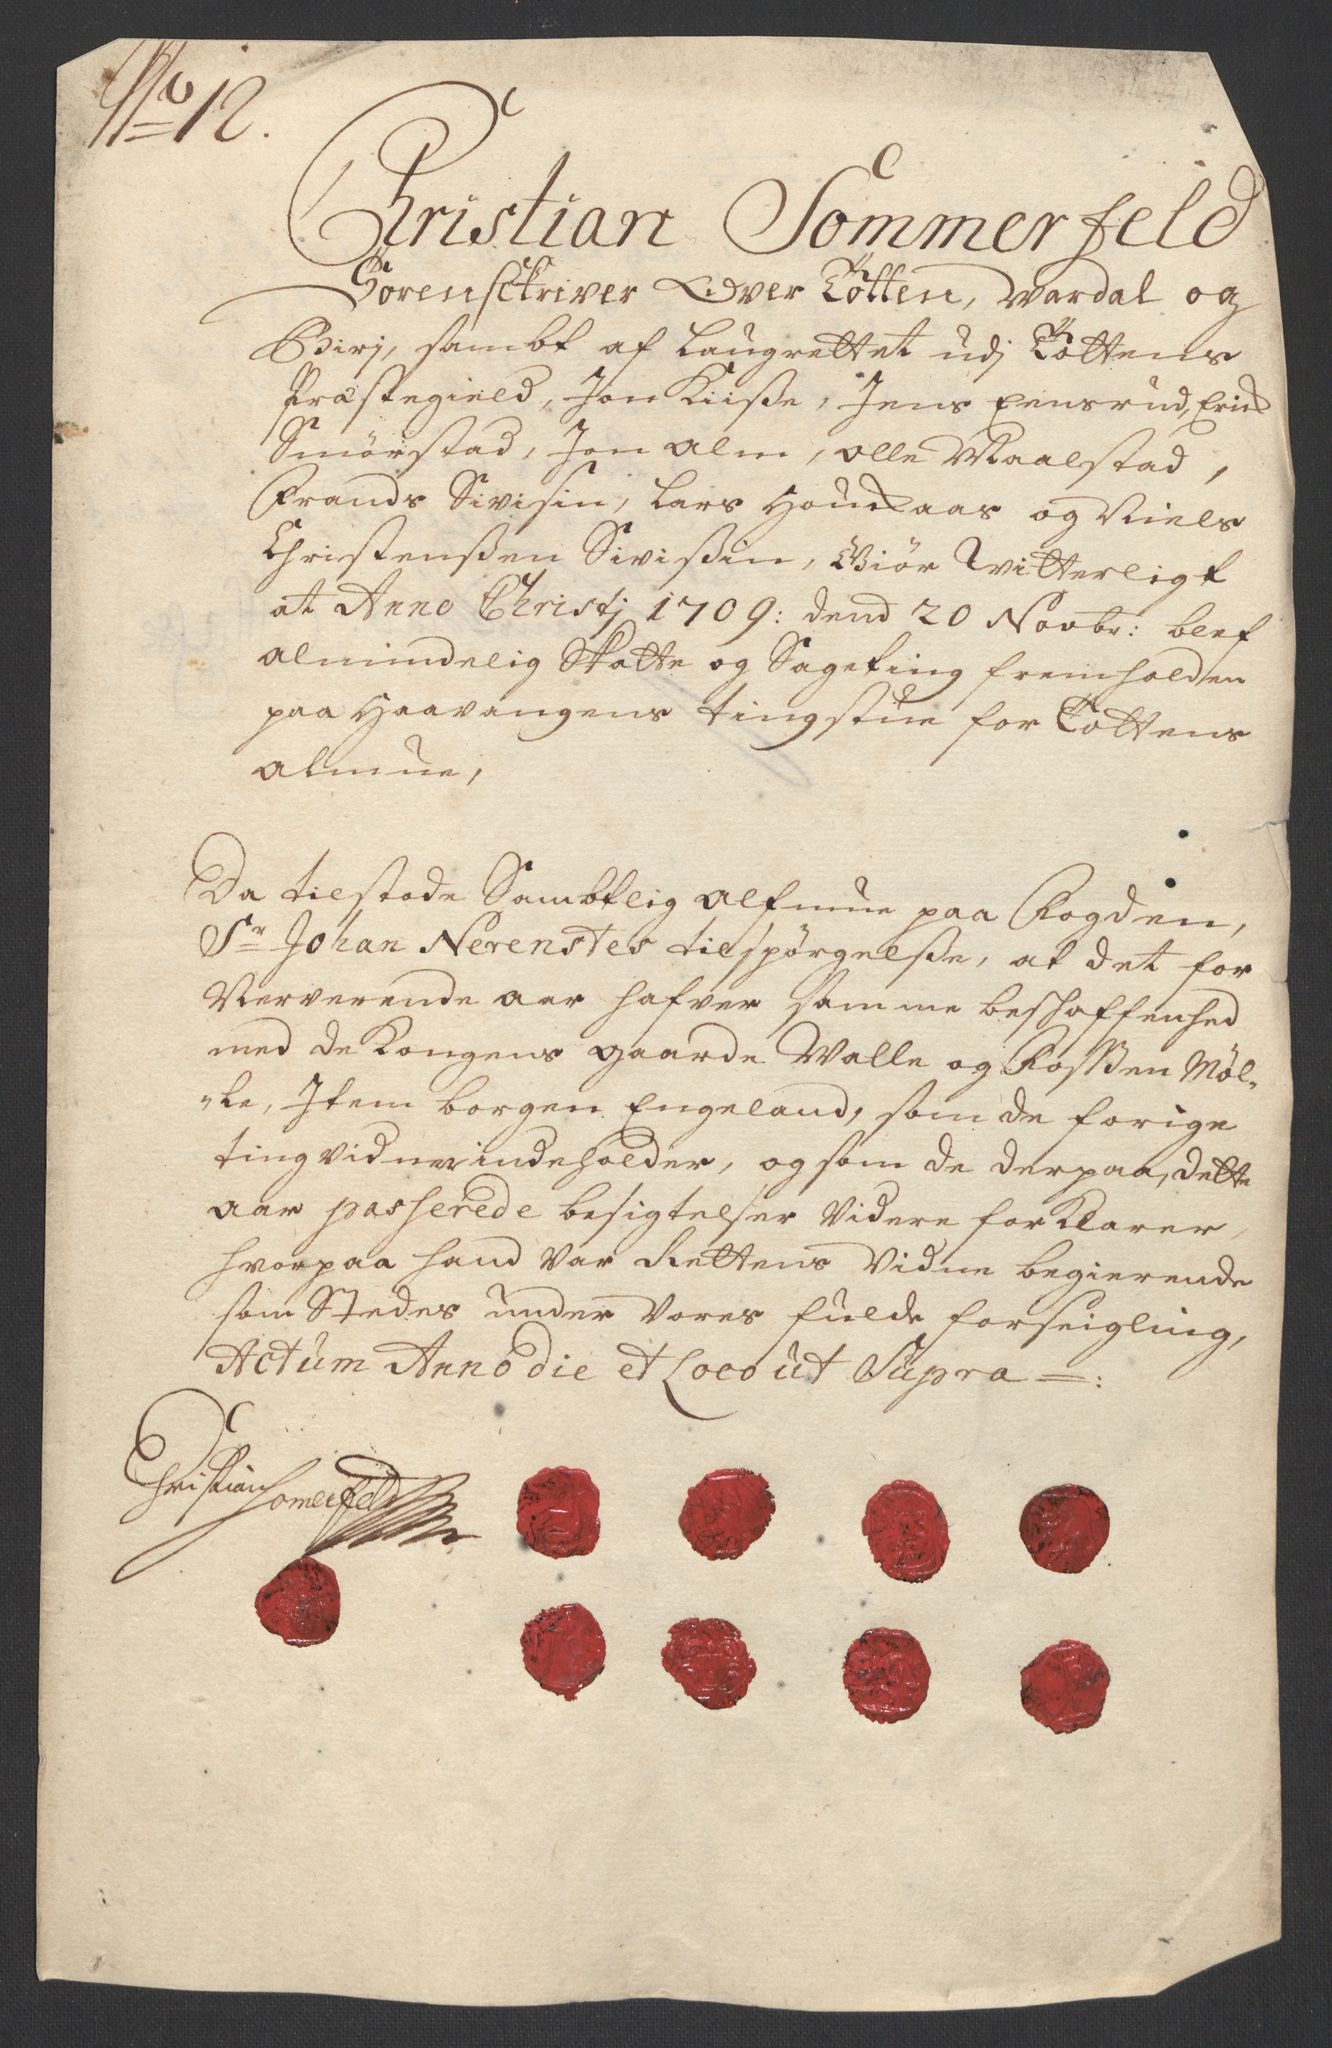 No 12.
Christian Sommerfeld
Sorenschriver Over Totten, Wardal og
Birj, sambt af Laugrettet udj Tottens
Præstegield, Jon Kiisße, Jens Eensrud, Erich
Smørstad, Jon Alm, Olle Maalstad,
Frands Sivisin, Lars Houchaas og Niels
Christensßen Sivisßin, Giør Witterligt
at Anno Christj 1709: dend 20 Novbr: blef
almindelig Skatte og Sageting fremholden
paa Haavangens tingstue for Tottens
almue,
Da tilstode Sambtlig alfmue paa Fogden,
Sr Johan Nerenstes tilspørgelsße, at det for
Nerverende aar hafver samme beskaffenhed
med de Kongens gaarde Walle og Fosßen Møl-
le, Item borgen Engeland, som de forige
tingvidner indeholder, og som de derpaa, dette
aar passerede besigtelser Videre forKlarer,
hvorpaa hand Var Rettens Vidne begierende
som Stedes under Vores fulde forseigling,
Actum Anno die et Loco ut Supra
Christian Somerfeld